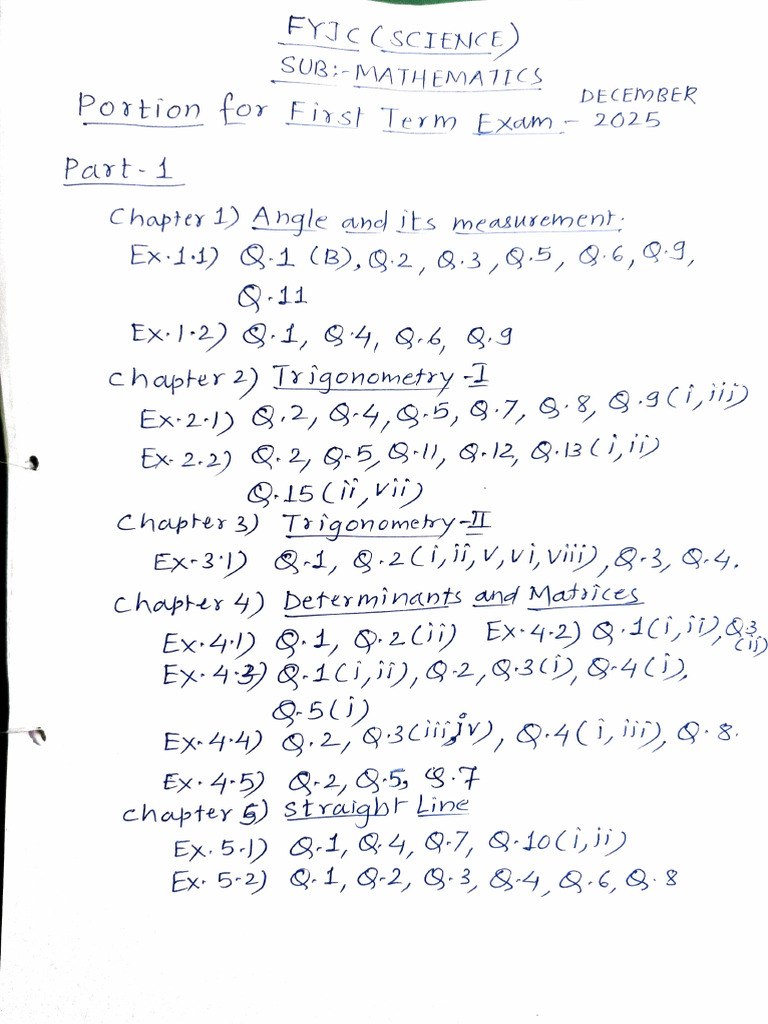 FYJC (SCIENCE)
SUB:- MATHEMATICS
Portion for First Term Exam - DECEMBER 2025
Part - 1
Chapter 1) Angle and its measurement:
Ex.1.1) Q.1 (B), Q.2, Q.3, Q.5, Q.6, Q.9,
Q.11
Ex.1.2) Q.1, Q.4, Q.6, Q.9
Chapter 2) Trigonometry - I
Ex.2.1) Q.2, Q.4, Q.5, Q.7, Q.8, Q.9 (i, iii)
Ex.2.2) Q.2, Q.5, Q.11, Q.12, Q.13 (i, ii)
Q.15 (ii, vii)
Chapter 3) Trigonometry - II
Ex-3.1) Q.1, Q.2 (i, ii, v, vi, viii), Q.3, Q.4.
Chapter 4) Determinants and Matrices
Ex.4.1) Q.1, Q.2 (ii) Ex-4.2) Q.1 (i, ii), Q.3 (ii)
Ex.4.3) Q.1 (i, ii), Q.2, Q.3 (i), Q.4 (i),
Q.5 (i)
Ex.4.4) Q.2, Q.3 (iii, iv), Q.4 (i, iii), Q.8.
Ex.4.5) Q.2, Q.5, Q.7
Chapter 5) Straight Line
Ex.5.1) Q.1, Q.4, Q.7, Q.10 (i, ii)
Ex.5.2) Q.1, Q.2, Q.3, Q.4, Q.6, Q.8